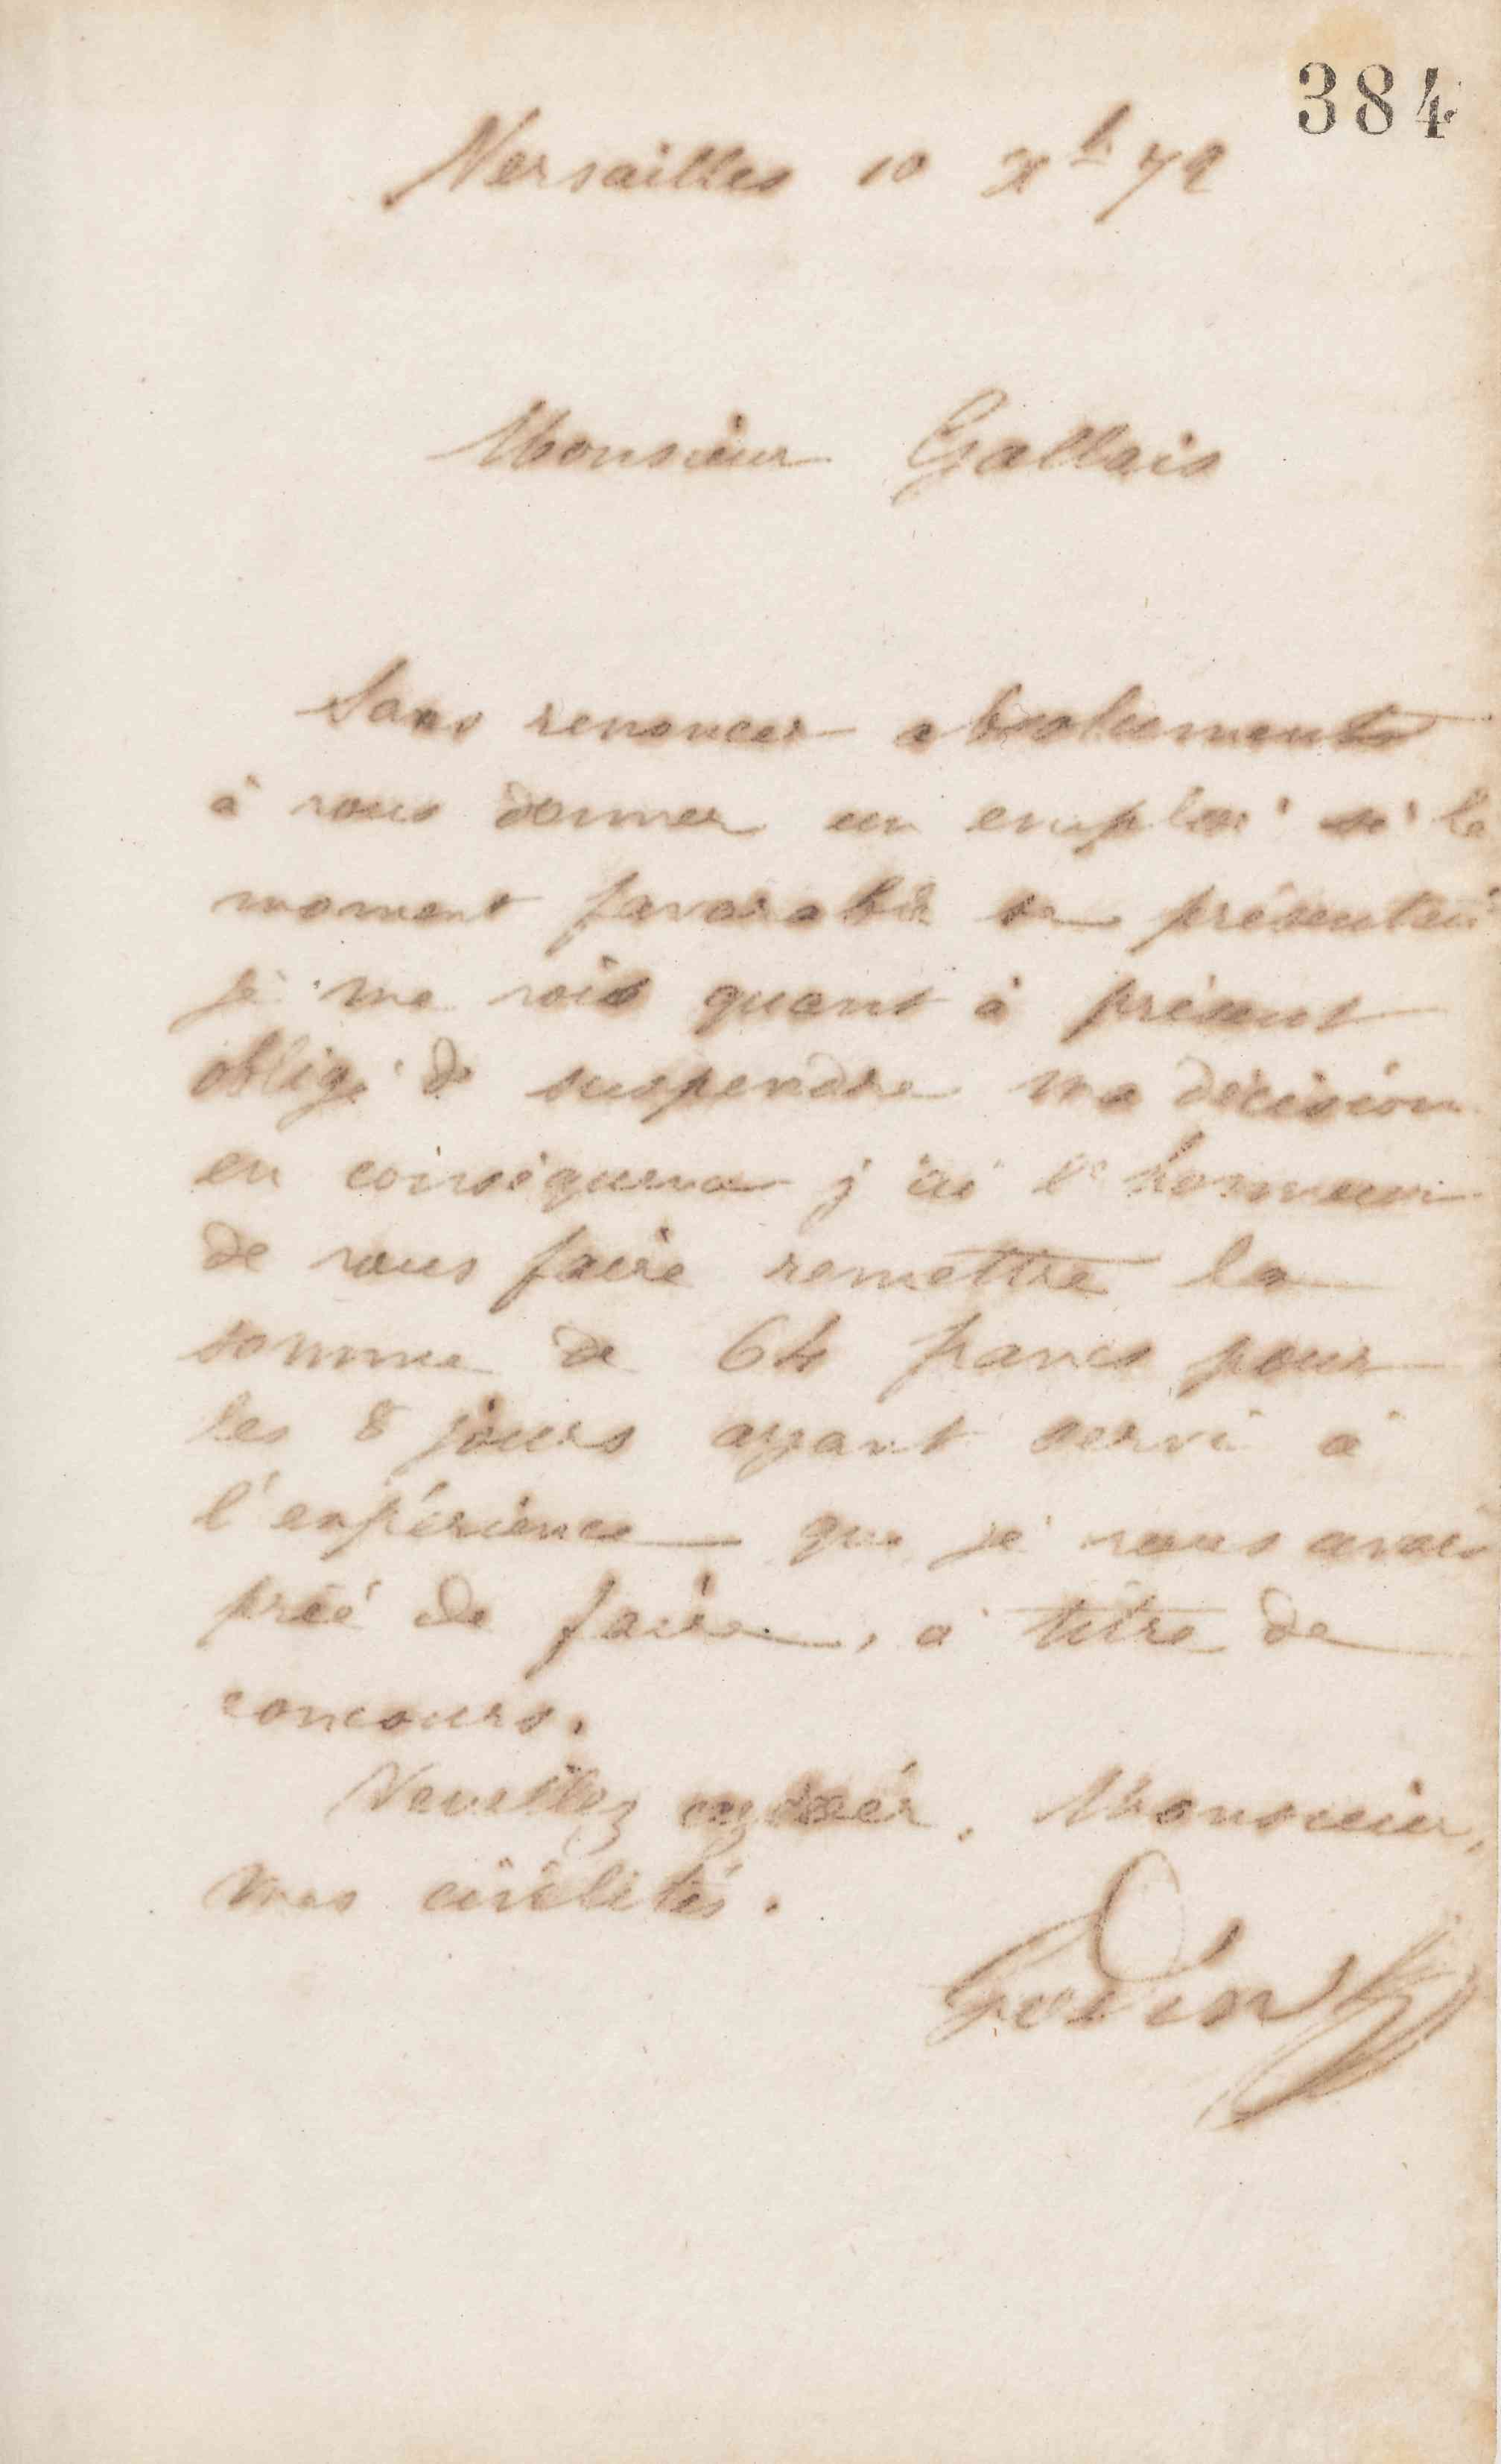 384
Versailles 10 Xb 72
Monsieur Gallais
Sans renoncer absolument
à vous donner un emploi si le
moment favorable se présentait
je me vois quant à présent
obligé de suspendre ma décision
en conséquence j'ai l'honneur
de vous faire remettre la
somme de 64 francs pour
les 8 jours ayant servi à
l'expérience que je vous avais
prié de faire, à titre de
concours.
Veuillez agréer, Monsieur,
mes civilités.
Godin